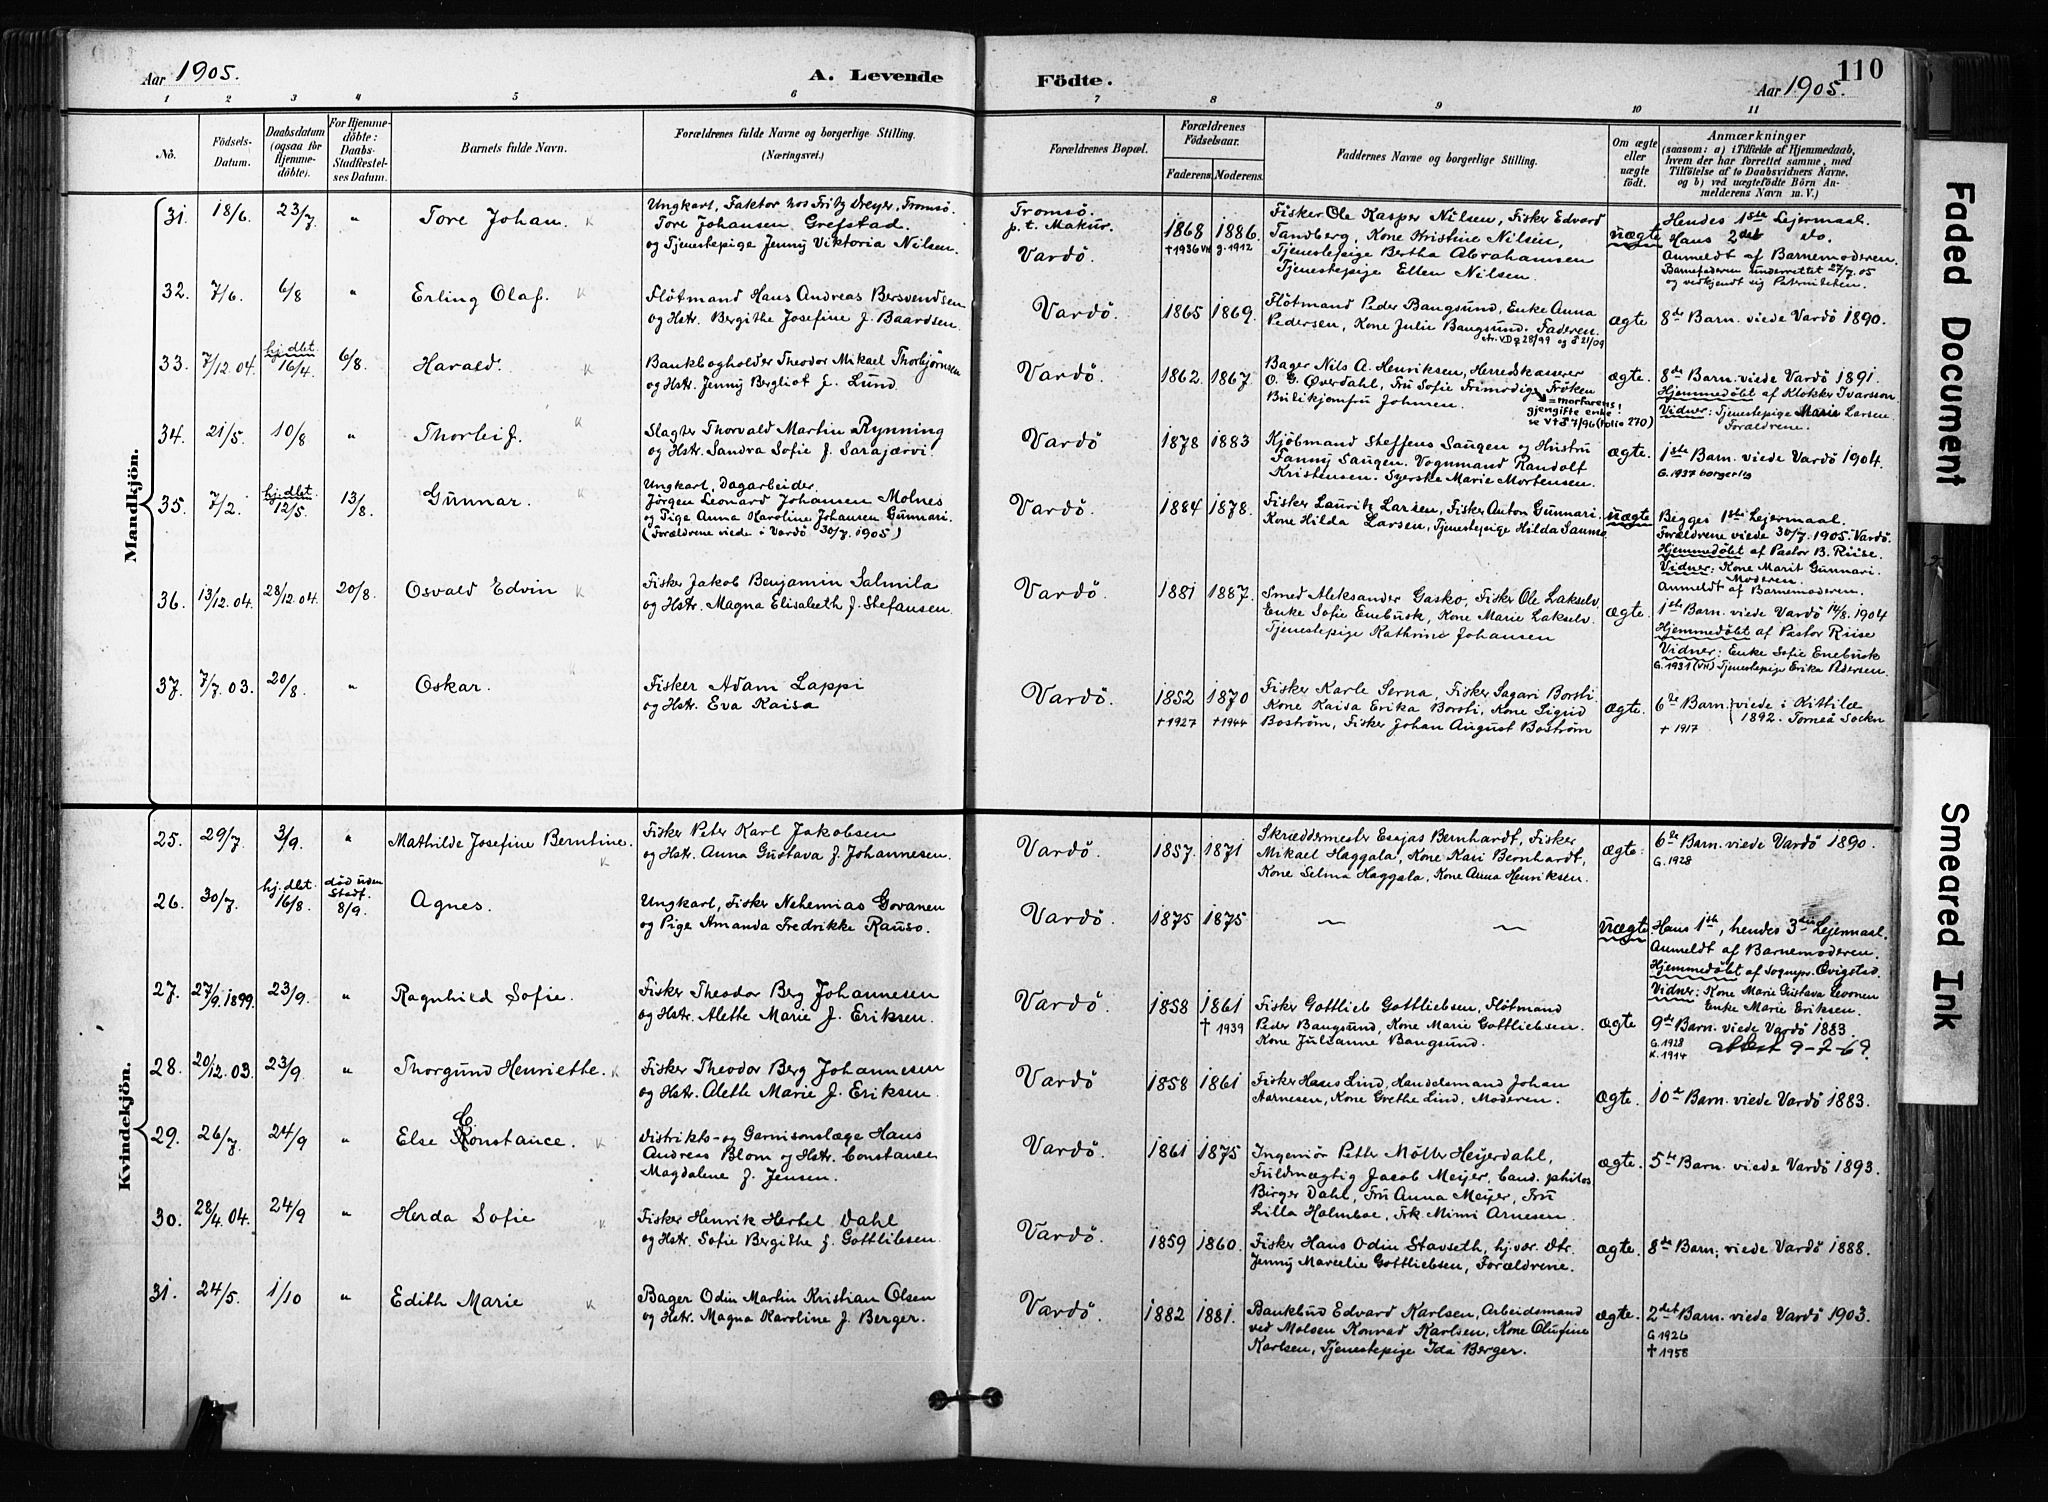 Aar 1905.
A. Levende
Födte.
Aar 1905.
110
1 2 3 4 5 6 7 8 9 10 11
No.
Födsels-
Datum.
Daabsdatum
(ogsaa for
Hjemme-
döbte).
For Hjemme-
döbte:
Daabs-
Stadfestel-
ses Datum.
Barnets fulde Navn.
Forældrenes fulde Navne og borgerlige Stilling.
(Næringsvei.)
Forældrenes Bopæl.
Forældrenes
Födselsaar.
Faderens. Moderens.
Faddernes Navne og borgerlige Stilling.
Om ægte
eller
uægte
födt.
Anmærkninger
(saasom: a) i Tilfælde af Hjemmedaab,
hvem der har forrettet samme, med
Tilföielse af to Daabsvidners Navne,
og b) ved uægtefödte Börn An-
melderens Navn m. V.)
Mandkjön.
31. 18/6. 23/7. " Tore Johan.
Ungkarl, Faktor hos Fritz Dreyer, Tromsö.
Tore Johansen Grefstad.
og Tjenestepige Jenny Viktoria Nilsen.
Tromsö.
p. t. Makur.
Vardö.
1868 1886.
†1936 VH g. 1912
Fisker Ole Kasper Nilsen, Fisker Edvard
Tandberg, Kone Kristine Nilsen,
Tjenestepige Bertha Abrahamsen
Tjenestepige Ellen Nilsen.
uægte
Hendes 1ste Lejermaal.
Hans 2det do.
Anmeldt af Barnemoderen.
Barnefaderen underrettet 27/7.05
og vedkjendt sig Paterniteten.
32. 7/6. 6/8 " Erling Olaf.
Flötmand Hans Andreas Bersvendsen
og Hstr. Bergithe Josefine f. Baardsen.
Vardö.
1865 1869.
Flötmand Peder Bangsund, Enke Anna
Pedersen, Kone Julie Bangsund. Faderen.
ægte
8de Barn. viede Vardö 1890.
33. 7/12.04. hj. dbt. 16/4. 6/8. Harald.
Bankbogholder Theodor Mikael Thorbjørnsen
og Hstr. Jenny Bergliot f. Lund.
Vardö.
1862. 1867.
Bager Nils A. Henriksen, Herredskasserer
O. G. Øverdahl, Frü Sofie Frimodig, Frøken
Butikjomfru Johnsen.
=morfarens
gjengifte enke!
se V†♂7/96 (folio 270)
ægte.
8de Barn. viede Vardö 1891.
Hjemmedöbt af Klokker Ivarsson.
Vidner: Tjenestepige Marie Larsen.
Forældrene.
34. 21/5. 10/8 " Thorleif.
Slagter Thorvald Martin Rynning
og Hstr. Sandra Sofie f. Sarajærvi.
Vardö
1878 1883
Kjöbmand Steffens Saugen og Hustru
Fanny Saugen. Vognmand Randolf
Kristensen. Syerske Marie Mortensen.
ægte.
1ste Barn. viede Vardö 1904.
G. 1937 borgerlig
35. 7/2. hj. dbt. 12/5. 13/8. Gunnar.
Ungkarl, Dagarbeider,
Jörgen Leonard Johansen Molnes
og Pige Anna Karoline Johansen Gunnari.
(Forældrene viede i Vardö 30/7.1905)
Vardö.
1884 1878.
Fisker Lauritz Larsen, Fisker Anton Gunnari.
Kone Hilda Larsen, Tjenestepige Hilda Saumo.
uægte
Begges 1ste Lejermaal.
Forældrene viede 30/7.1905. Vardö.
Hjemmedöbt af Pastor B. Riise.
Vidner: Kone Marit Gunnari.
Moderen.
Anmeldt af Barnemoderen.
36. 13/12.04. 28/12.04. 20/8. Osvald Edvin
Fisker Jakob Benjamin Salmila
og Hstr. Magna Elisabeth f. Stefansen.
Vardö.
1881 1887.
Smed Aleksander Gasko, Fisker Ole Lakselv.
Enke Sofie Enebusk, Kone Marie Lakselv.
Tjenestepige Kathrine Johansen
ægte.
1ste Barn. viede Vardö 14/8.1904
Hjemmedöbt af Pastor Riise
Vidner: Enke Sofie Enebusk
G. 1931 (VH) Tjenestepige Erika Pedersen.
37. 7/7.03. 20/8. " Oskar.
Fisker Adam Lappi
og Hstr. Eva Kaisa
Vardö.
1852 1870
†1927 †1944
Fisker Karle Serna, Fisker Sagari Borsti
Kone Kaisa Erika Borsti, Kone Sigrid
Boström, Fisker Johan August Boström
ægte.
6te Barn. viede i Kittilæ
1892. Torneå Sockn
†1917
Kvindekjön.
25. 29/7. 3/9. " Mathilde Josefine Berntine.
Fisker Peter Karl Jakobsen
og Hstr. Anna Gustava f. Johannesen.
Vardö.
1857. 1871
Skræddermester Esajas Bernhardt, Fisker
Mikael Haggala, Kone Kari Bernhardt,
Kone Selma Haggala, Kone Anna Henriksen.
ægte.
6te Barn. viede Vardö 1890.
G. 1928
26. 30/7. hj. dbt. 16/8. död uden Stadf. 8/9. Agnes.
Ungkarl, Fisker Nehemias Govanen
og Pige Amanda Fredrikke Rauso.
Vardö.
1875 1875
— —
uægte
Hans 1ste, hendes 3die Lejermaal.
Anmeldt af Barnemoderen.
Hjemmedöbt af Sognepr. Qvigstad.
Vidner: Kone Marie Gustava Levonen
Enke Marie Eriksen.
27. 27/9.1899. 23/9. " Ragnhild Sofie.
Fisker Theodor Berg Johannesen
og Hstr. Alette Marie f. Eriksen.
Vardö.
1858 1861
†1939
Fisker Gottlieb Gottliebsen, Flötmand
Peder Bangsund, Kone Marie Gottliebsen.
Kone Julianne Bangsund.
ægte
9de Barn. viede Vardö 1883.
G. 1928
K. 1914 attest 9-2-69.
28. 20/12.03. 23/9. " Thorgund Henriette.
Fisker Theodor Berg Johannesen
og Hstr. Alette Marie f. Eriksen.
Vardö
1858 1861
Fisker Hans Lind, Handelsmand Johan
Aarnesen, Kone Grethe Lind. Moderen.
ægte.
10de Barn. viede Vardö 1883.
29. 26/7. 24/9 " Else Constance.
Distrikts- og Garnisonslæge Hans
Andreas Blom og Hstr. Constance
Magdalene f. Jensen.
Vardö.
1861 1875
Ingeniør Petter Möller Heijerdahl,
Fuldmægtig Jacob Meijer, Cand. philos
Birger Dahl, Frü Anna Meijer, Frü
Lilla Holmboe, Frk. Mimi Arnesen.
ægte.
5te Barn. viede Vardö 1893.
30. 28/4.04. 24/9 " Herda Sofie
Fisker Henrik Hertel Dahl
og Hstr. Sofie Bergithe f. Gottliebsen.
Vardö.
1859 1860.
Fisker Hans Odin Stavseth, hj.vær. Dtr.
Jenny Marcelie Gottliebsen, Forældrene.
ægte.
8de Barn. viede Vardö 1888.
31. 24/5. 1/10 " Edith Marie
Bager Odin Martin Kristian Olsen
og Hstr. Magna Karoline f. Berger.
Vardö.
1882 1881.
Bankbud Edvard Karlsen, Arbeidsmand
ved Moloen Konrad Karlsen, Kone Olufine
Karlsen, Tjenestepige Ida Berger.
ægte.
2det Barn. viede Vardö 1903.
G 1926
†1958
Faded Document
Smeared Ink